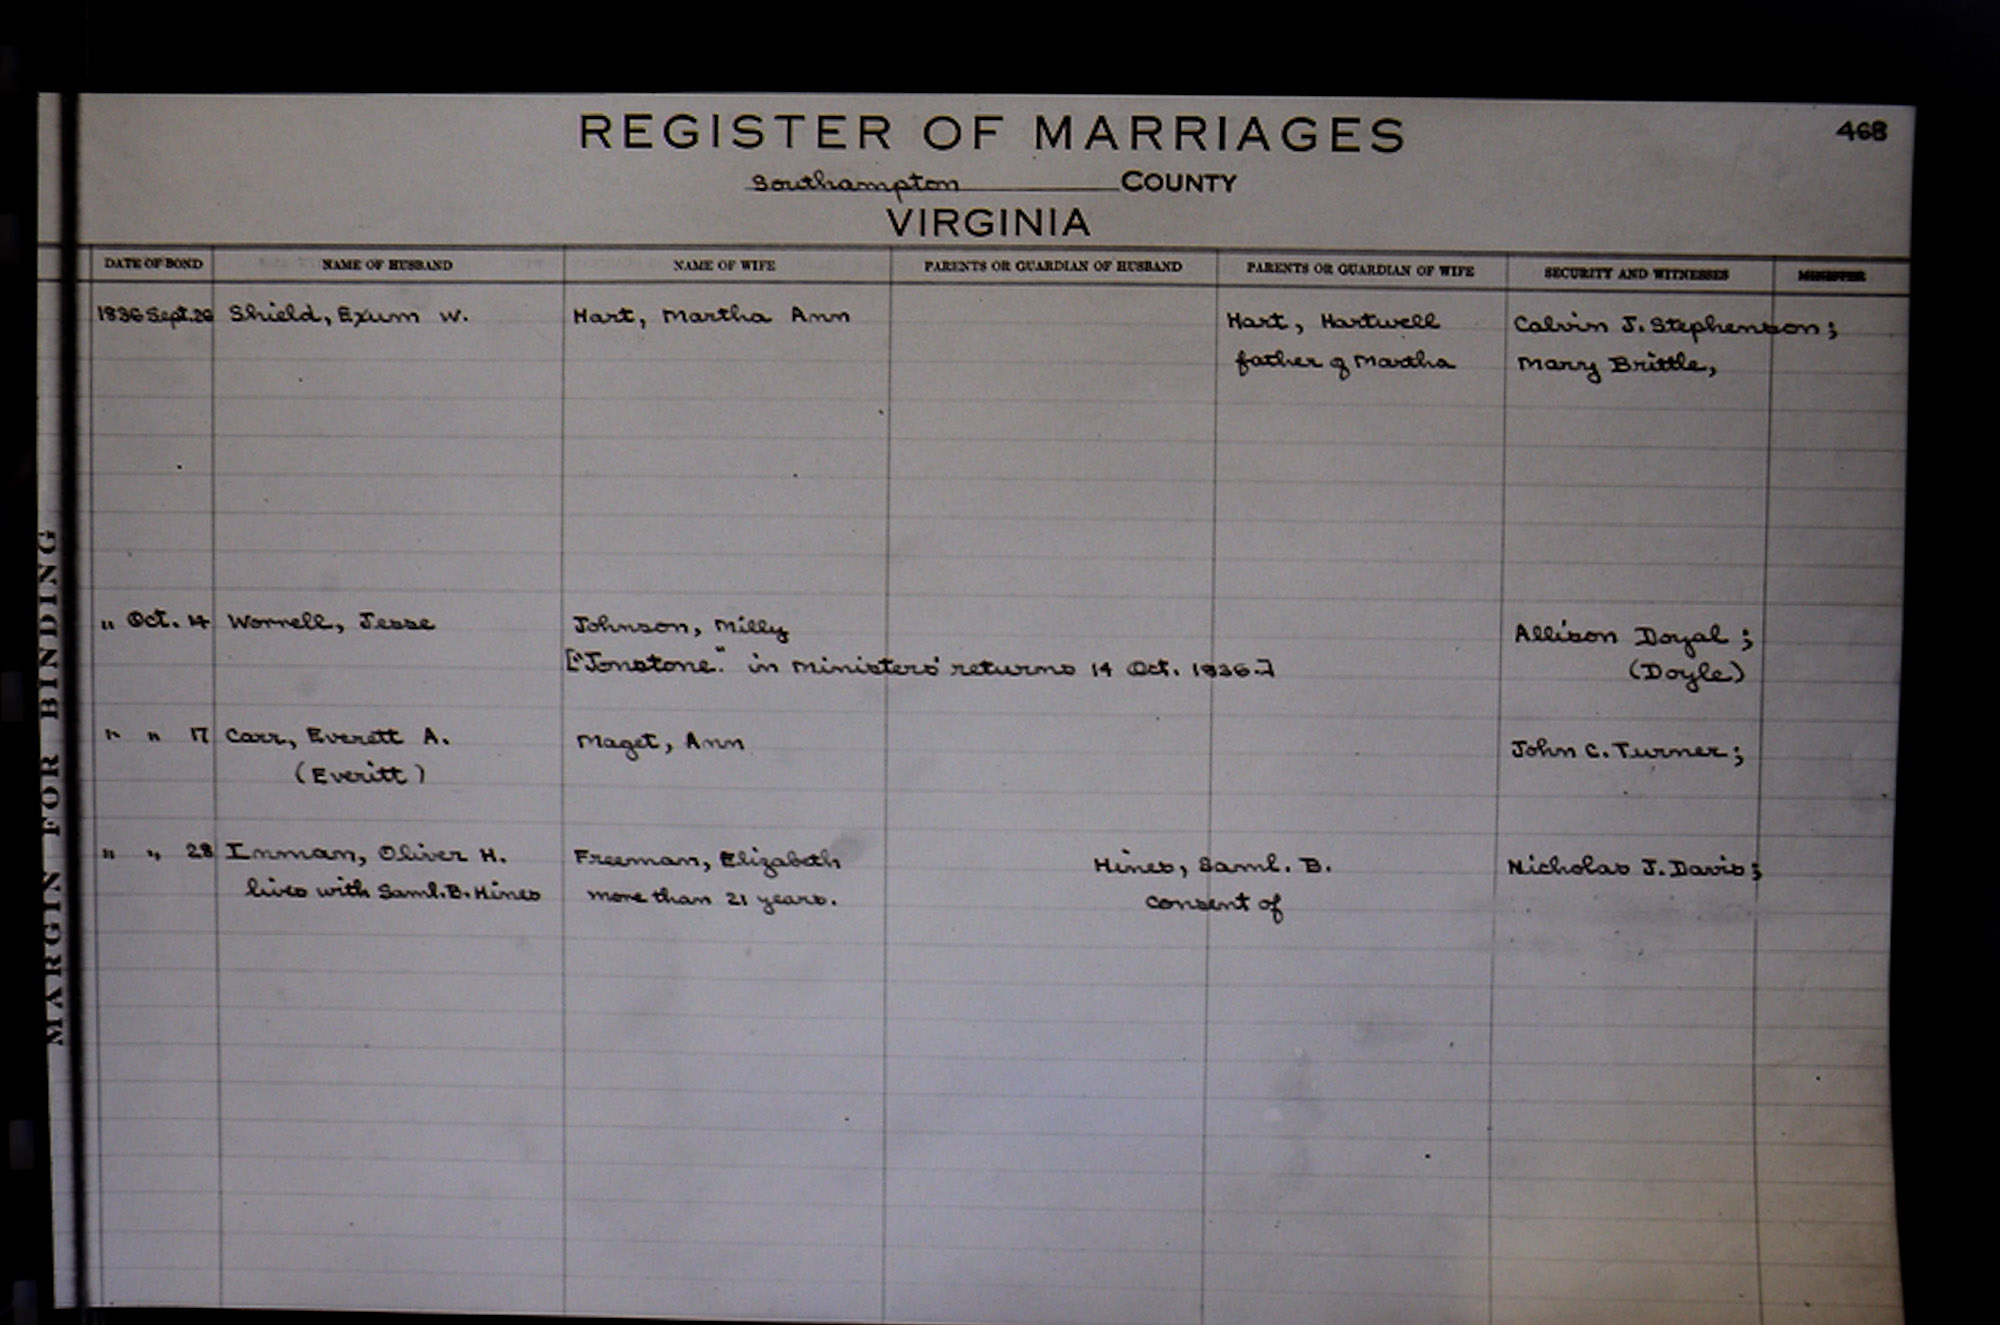 REGISTER OF MARRIAGES
468
Southampton COUNTY
VIRGINIA
DATE OF BOND NAME OF HUSBAND NAME OF WIFE PARENTS OR GUARDIAN OF HUSBAND PARENTS OR GUARDIAN OF WIFE SECURITY AND WITNESSES MINISTER
1836 Sept. 26 Shield, Exum W. Hart, Martha Ann Hart, Hartwell Calvin J. Stephenson;
father of Martha Mary Brittle,
" Oct. 14 Worrell, Jesse Johnson, Milly Allison Doyal;
["Jonstone." in ministers' returns 14 Oct. 1836.] (Doyle)
" " 17 Carr, Everett A. Maget, Ann John C. Turner;
(Everitt)
" " 28 Inman, Oliver H. Freeman, Elizabeth Hines, Saml. B. Nicholas J. Davis;
lives with Saml. B. Hines more than 21 years. consent of
MARGIN FOR BINDING